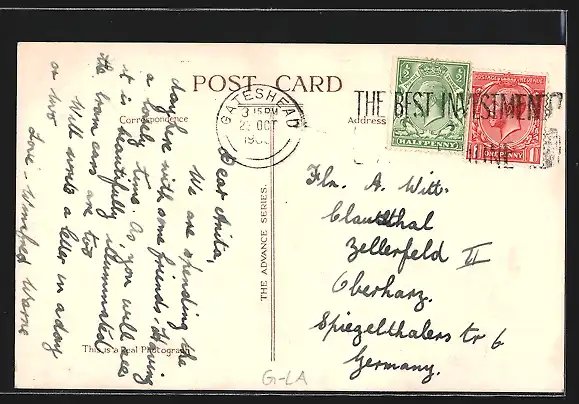 POST CARD
Correspondence
Address
GATESHEAD
3 15 PM
OCT
THE BEST INVESTMENT
HALFPENNY
POSTAGE REVENUE
ONE PENNY
Dear Anita,
We are spending the
day here with some friends. Having
a lovely time. As you will see
it is beautifully illuminated
the tram cars are too
Will write a letter in a day
or two
Love - Winifred Warne
THE ADVANCE SERIES.
This is a Real Photograph
Fln. A. Witt.
Clausthal
Zellerfeld II
Oberharz.
Spiegelthalers tr 6
Germany.
G-LA